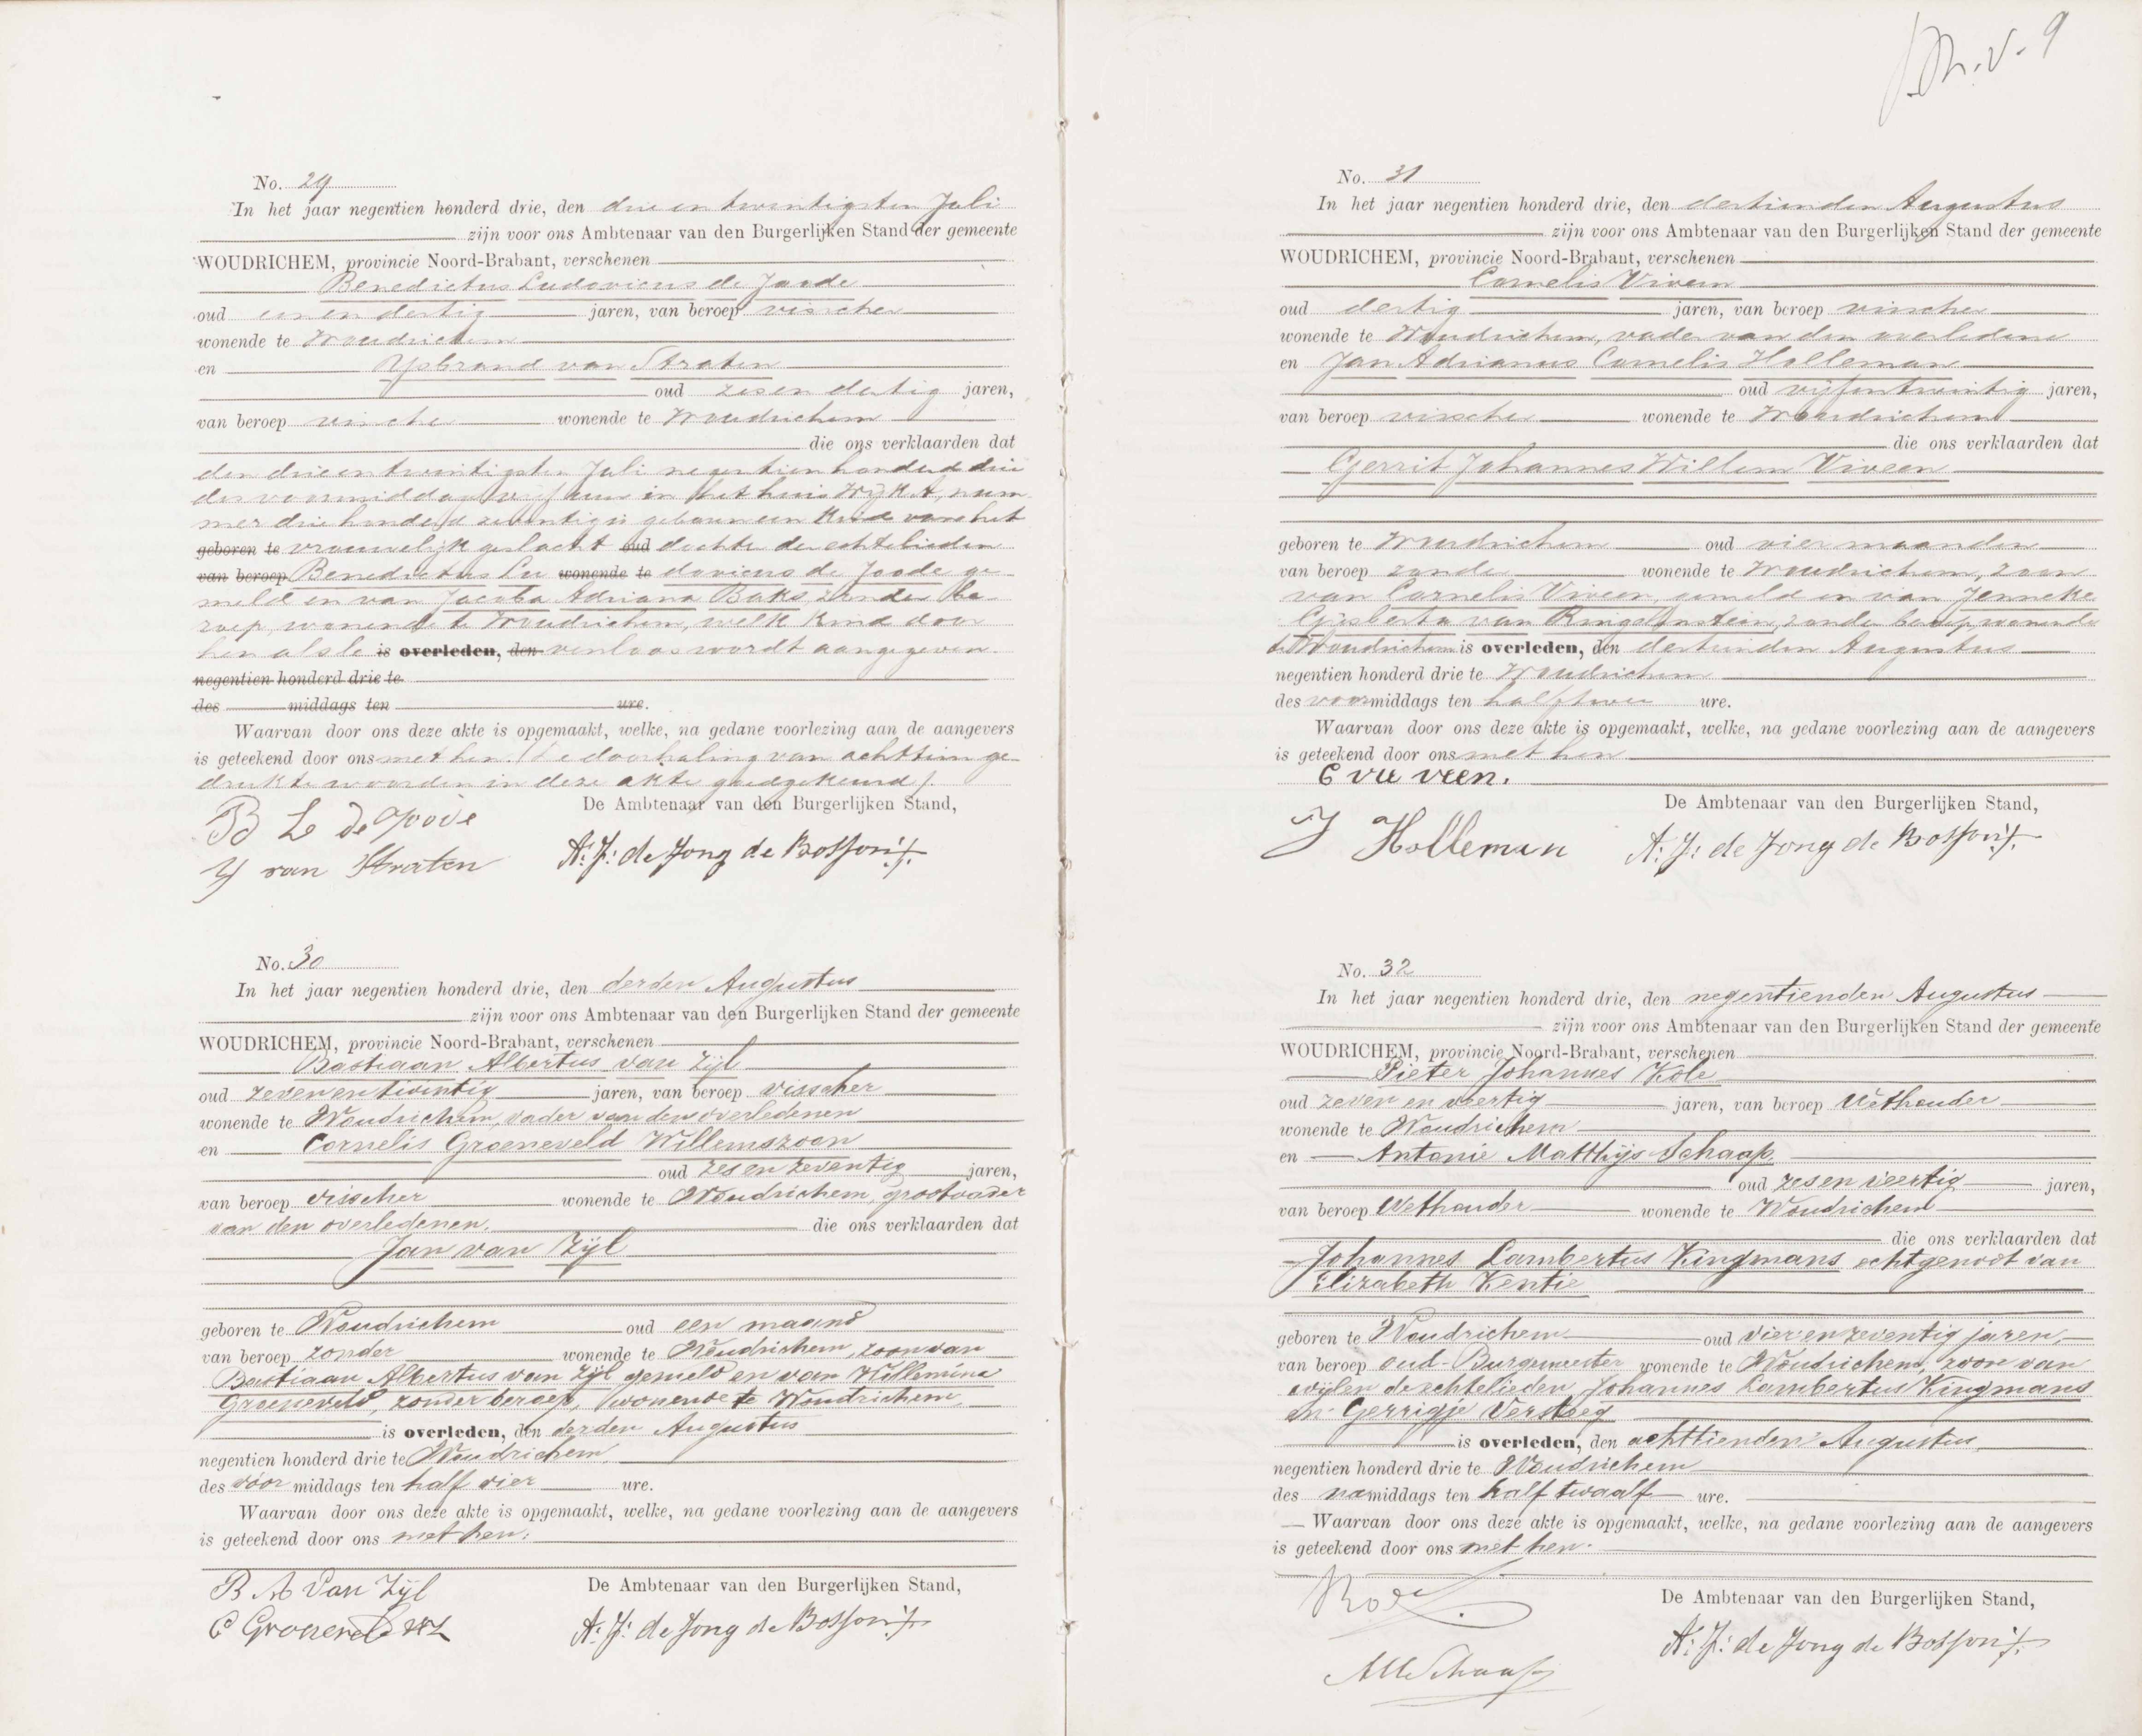 No. 29
In het jaar negentien honderd drie, den drie en twintigsten Juli
zijn voor ons Ambtenaar van den Burgerlijken Stand der gemeente
WOUDRICHEM, provincie Noord-Brabant, verschenen
Benedictus Ludovicus de Joode
oud een en dertig jaren, van beroep visscher
wonende te Woudrichem
en Ysbrand van Straten
oud zes en dertig jaren,
van beroep visscher wonende te Woudrichem
die ons verklaarden dat
den drie en twintigsten Juli negentien honderd drie
des voormiddags vijf uur in het huis Wijk A, num-
mer drie honderd zeventig is geboren een Kind van het
geboren te vrouwelijk geslacht oud dochter der echtelieden
van beroep Benedictus Lu wonende te dovicus de Joode ge-
meld en van Jacoba Adriana Baks, zonder be-
roep, wonende te Woudrichem, welk Kind door
hen als le is overleden, den venloos wordt aangegeven.
negentien honderd drie te
des middags ten ure.
Waarvan door ons deze akte is opgemaakt, welke, na gedane voorlezing aan de aangevers
is geteekend door ons met hen. (De doorhaling van achttien ge-
drukte woorden in deze akte goedgekeurd).
De Ambtenaar van den Burgerlijken Stand,
B L de Joode
Y van Straten
A. J. de Jong de Bosson
No. 30
In het jaar negentien honderd drie, den derden Augustus
zijn voor ons Ambtenaar van den Burgerlijken Stand der gemeente
WOUDRICHEM, provincie Noord-Brabant, verschenen
Bastiaan Albertus van Zijl
oud zeven en twintig jaren, van beroep visscher
wonende te Woudrichem, vader van den overledenen
en Cornelis Groeneveld Willemszoon
oud zes en zeventig jaren,
van beroep visscher wonende te Woudrichem, grootvader
van den overledenen. die ons verklaarden dat
Jan van Zijl
geboren te Woudrichem oud een maand
van beroep zonder wonende te Woudrichem, zoon van
Bastiaan Albertus van Zijl gemeld en van Willemina
Groeneveld, zonder beroep, wonende te Woudrichem,
is overleden, den derden Augustus
negentien honderd drie te Woudrichem,
des voor middags ten half vier ure.
Waarvan door ons deze akte is opgemaakt, welke, na gedane voorlezing aan de aangevers
is geteekend door ons met hen.
De Ambtenaar van den Burgerlijken Stand,
B A van Zijl
C Groeneveld WZ
A. J. de Jong de Bosson
9
No. 31
In het jaar negentien honderd drie, den dertienden Augustus
zijn voor ons Ambtenaar van den Burgerlijken Stand der gemeente
WOUDRICHEM, provincie Noord-Brabant, verschenen
Cornelis Viveen
oud dertig jaren, van beroep visscher
wonende te Woudrichem, vader van den overledene
en Jan Adrianus Cornelis Holleman
oud vijfentwintig jaren,
van beroep visscher wonende te Woudrichem
die ons verklaarden dat
Gerrit Johannes Willem Viveen
geboren te Woudrichem oud vier maanden
van beroep zonder wonende te Woudrichem, zoon
van Cornelis Viveen, gemeld en van Jenneke
Gijsberta van Ringelenstein, zonder beroep, wonende
te Woudrichem is overleden, den dertienden Augustus
negentien honderd drie te Woudrichem
des voormiddags ten half twee ure.
Waarvan door ons deze akte is opgemaakt, welke, na gedane voorlezing aan de aangevers
is geteekend door ons met hen
C vie veen.
De Ambtenaar van den Burgerlijken Stand,
J Holleman
A. J. de Jong de Bosson
No. 32
In het jaar negentien honderd drie, den negentienden Augustus
zijn voor ons Ambtenaar van den Burgerlijken Stand der gemeente
WOUDRICHEM, provincie Noord-Brabant, verschenen
Pieter Johannes Kole
oud zeven en veertig jaren, van beroep Wethouder
wonende te Woudrichem
en Antonie Matthijs Schaap
oud zes en veertig jaren,
van beroep Wethouder wonende te Woudrichem
die ons verklaarden dat
Johannes Lambertus Kingmans echtgenoot van
Elizabeth Kentie
geboren te Woudrichem oud vier en zeventig jaren,
van beroep oud-Burgemeester wonende te Woudrichem, zoon van
wijlen de echtelieden Johannes Lambertus Kingmans
en Gerrigje Versteeg
is overleden, den achttienden Augustus
negentien honderd drie te Woudrichem
des namiddags ten half twaalf ure.
Waarvan door ons deze akte is opgemaakt, welke, na gedane voorlezing aan de aangevers
is geteekend door ons met hen.
De Ambtenaar van den Burgerlijken Stand,
Kole
AM Schaap
A. J. de Jong de Bosson